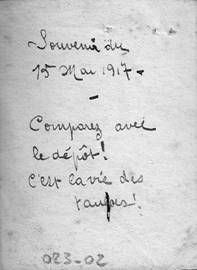 Souvenir du
15 Mai 1917 -
-
Comparez avec
le dépôt!
C'est la vie des
taupes!
023-02